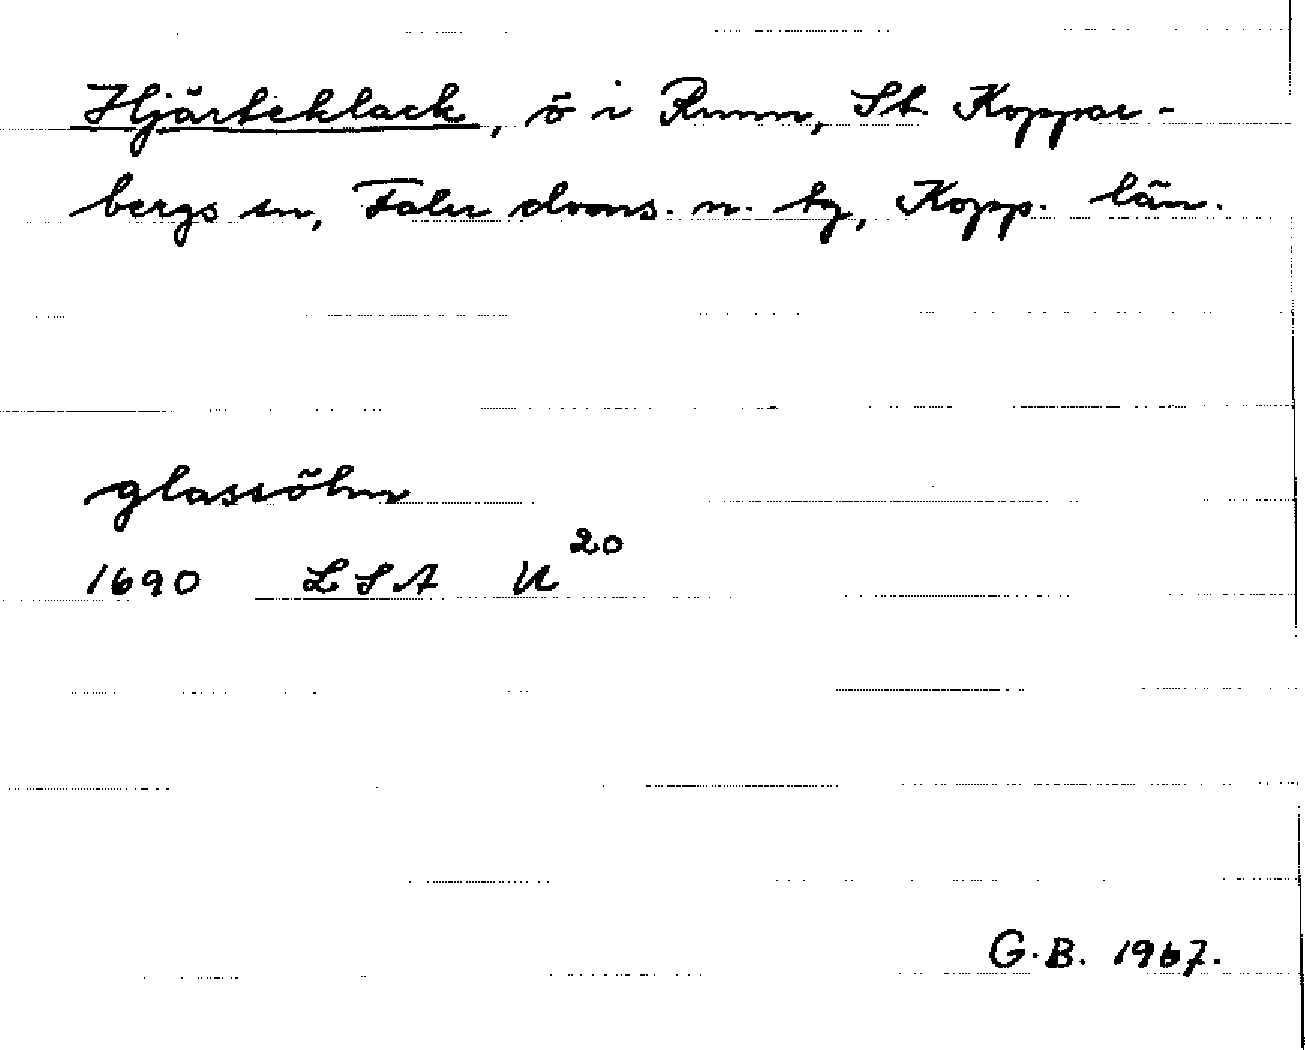 Hjärteklack, ö i Runn, St. Koppar-
bergs sn, Falu doms. n. tg, Kopp. län.
glassöhn
1690 LSA U 20
G.B. 1967.